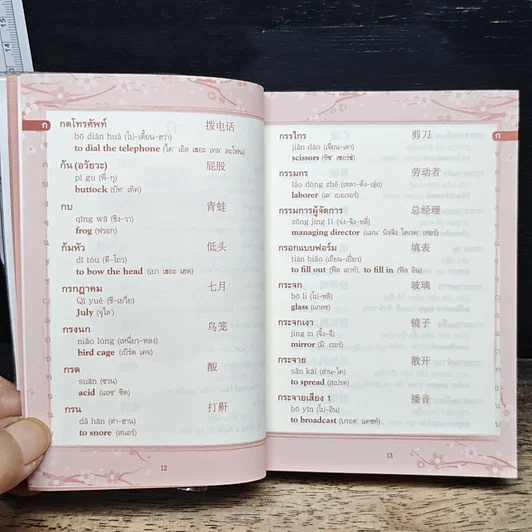 ก
กดโทรศัพท์ 拨电话
bō diàn huà (โป-เตี้ยน-ฮว่า)
to dial the telephone (ไดˊ เอิล เธอะ เทลˊ ละโฟน)
ก้น (อวัยวะ) 屁股
pì gu (พี่-กุ)
buttock (บัทˊ เทิค)
กบ 青蛙
qīng wā (ชิง-วา)
frog (ฟรอก)
ก้มหัว 低头
dī tóu (ตี-โถว)
to bow the head (เบา เธอะ เฮด)
กรกฎาคม 七月
Qī yuè (ชี-เยวี่ย)
July (จูไลˊ)
กรงนก 鸟笼
niǎo lóng (เหนี่ยว-หลง)
bird cage (เบิร์ด เคจ)
กรด 酸
suān (ซวน)
acid (แอซˊ ซิด)
กรน 打鼾
dǎ hān (ต่า-ฮาน)
to snore (สนอร์)
12
ก
กรรไกร 剪刀
jiǎn dāo (เจี่ยน-เตา)
scissors (ซิซˊ เซอร์ซ)
กรรมกร 劳动者
láo dòng zhě
laborer (เลˊ เบอเรอร์)
กรรมการผู้จัดการ 总经理
zǒng jīng lǐ (จ่ง-จิง-หลี่)
managing director
กรอกแบบฟอร์ม 填表
tián biǎo (เถียน-เปี่ยว)
to fill out (ฟิล เอาท์), to fill in (ฟิล อิน)
กระจก 玻璃
bō li (โป-หลี)
glass (แกลซ)
กระจกเงา 镜子
jìng zi (จิ้ง-จึ)
mirror (มิˊ เรอร์)
กระจาย 散开
sàn kāi (ส้าน-ไค)
to spread (สเปรด)
กระจายเสียง 1 播音
bō yīn (โป-อิน)
to broadcast (บรอดˊ แคซท์)
13
14
15